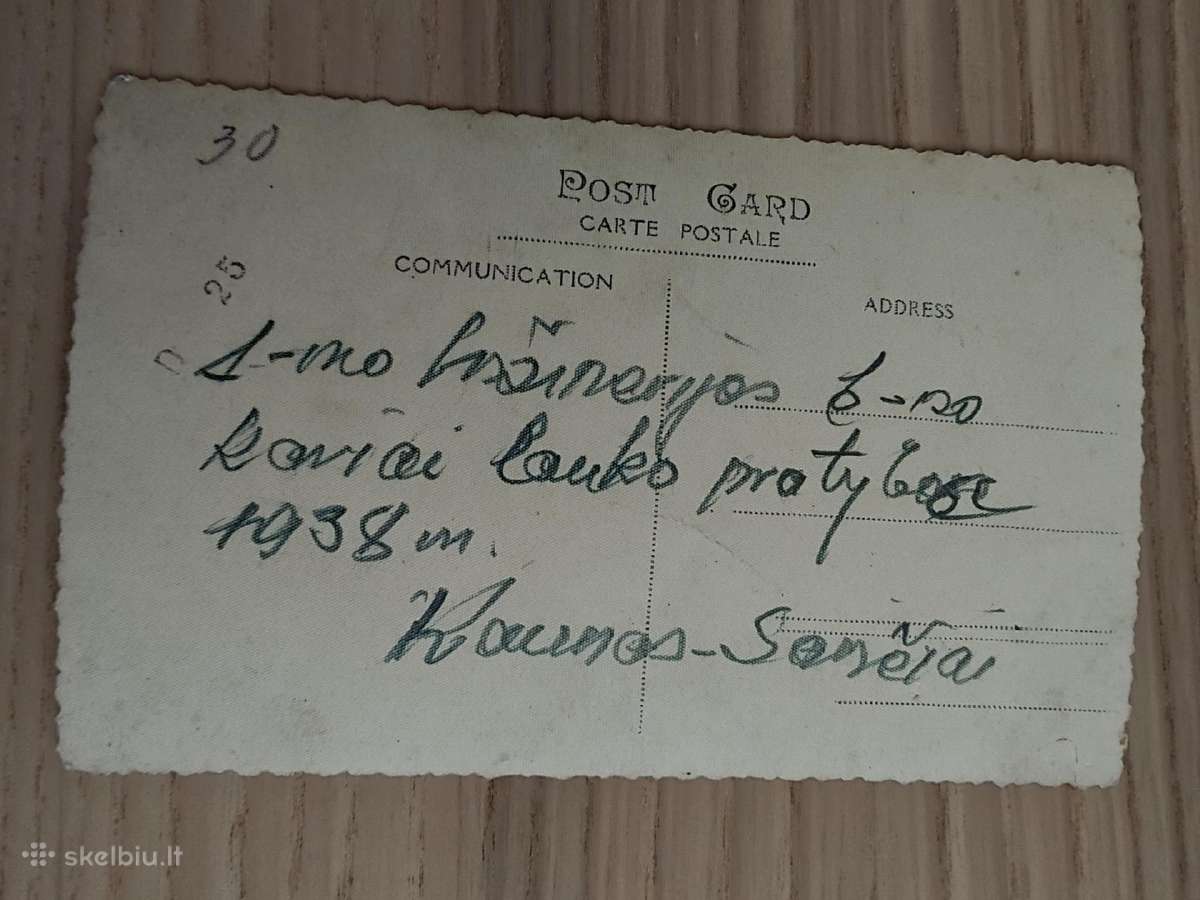 30
POST CARD
CARTE POSTALE
COMMUNICATION
ADDRESS
25
D
1-mo Inžinerijos b-no
kariai lauko pratybose
1938 m.
Kaunas-Šančiai
skelbiu.lt